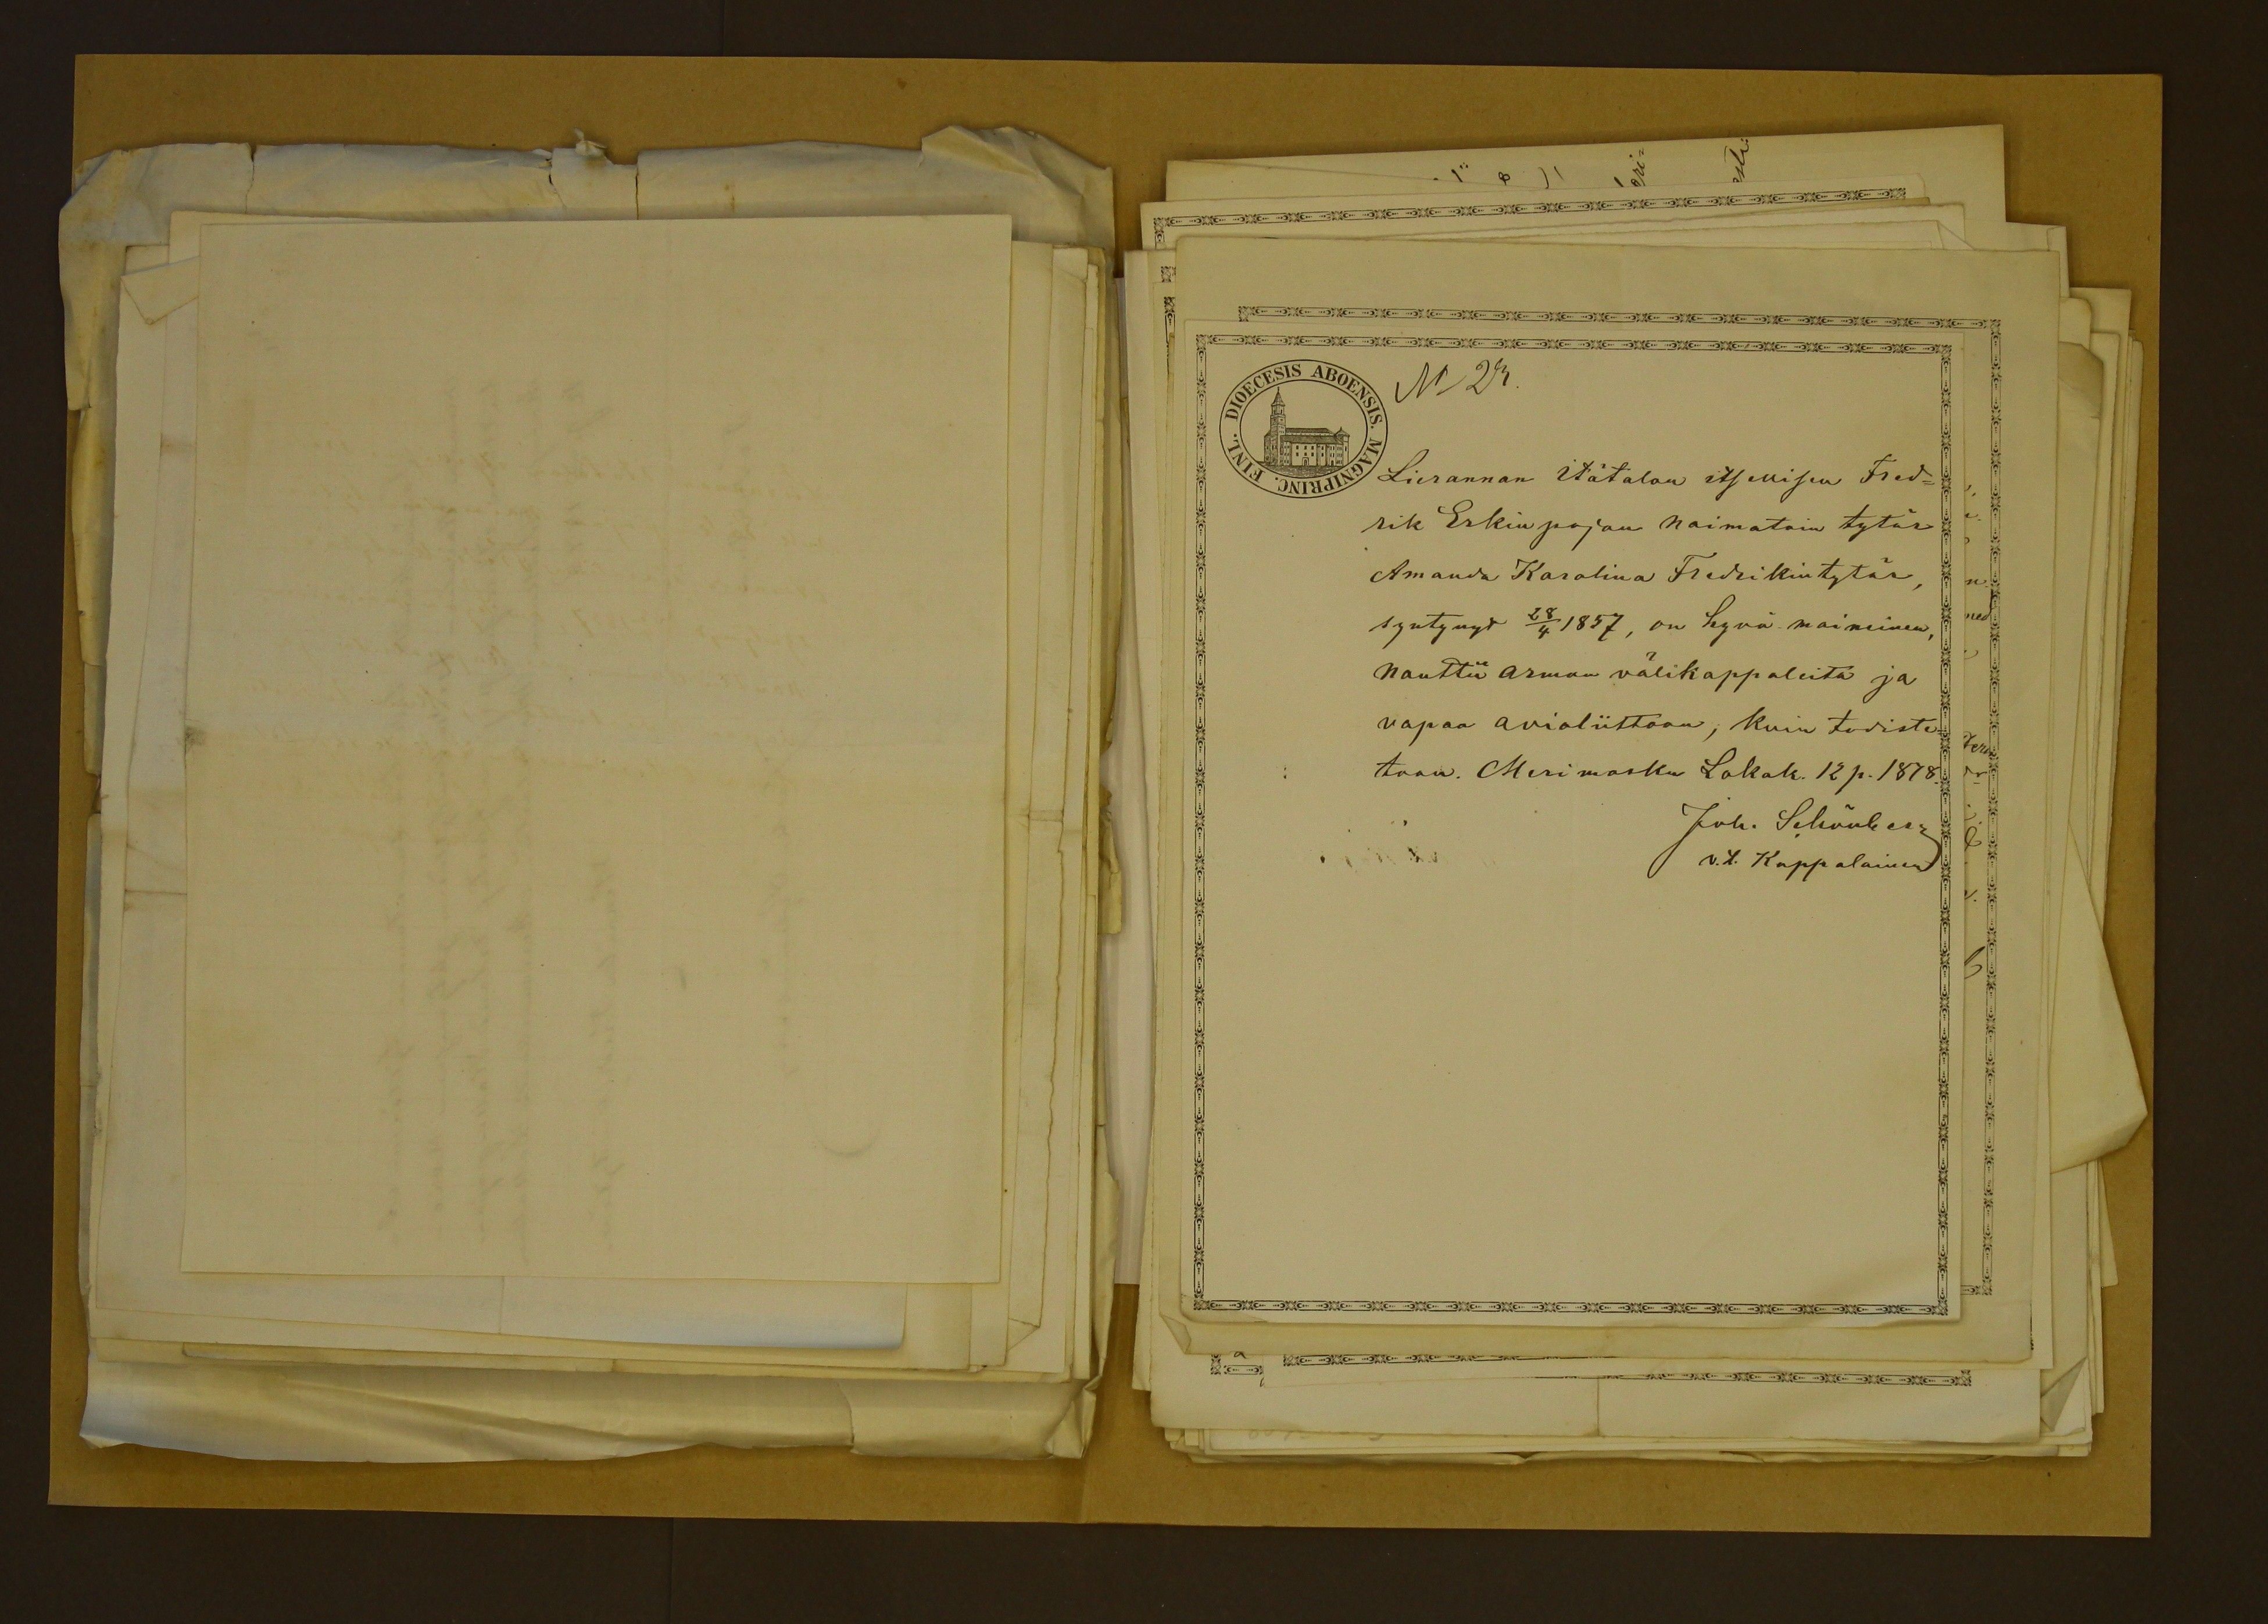 DIOECESIS ABOENSIS. MAGNIPRINC. FINL.
Lierannan Itätalon itsellisen Fred=
rik Erkinpojan naimatoin tytär
Amanda Karolina Fredrikintytär,
syntynyt 28/4 1857, on hyvä maineinen,
nauttii armon välikappaleita ja
vapaa avioliittoon, kuin todiste-
taan. Merimasku Lokak. 12 p. 1878.
Joh. Schönberg
v.t. Kappalainen